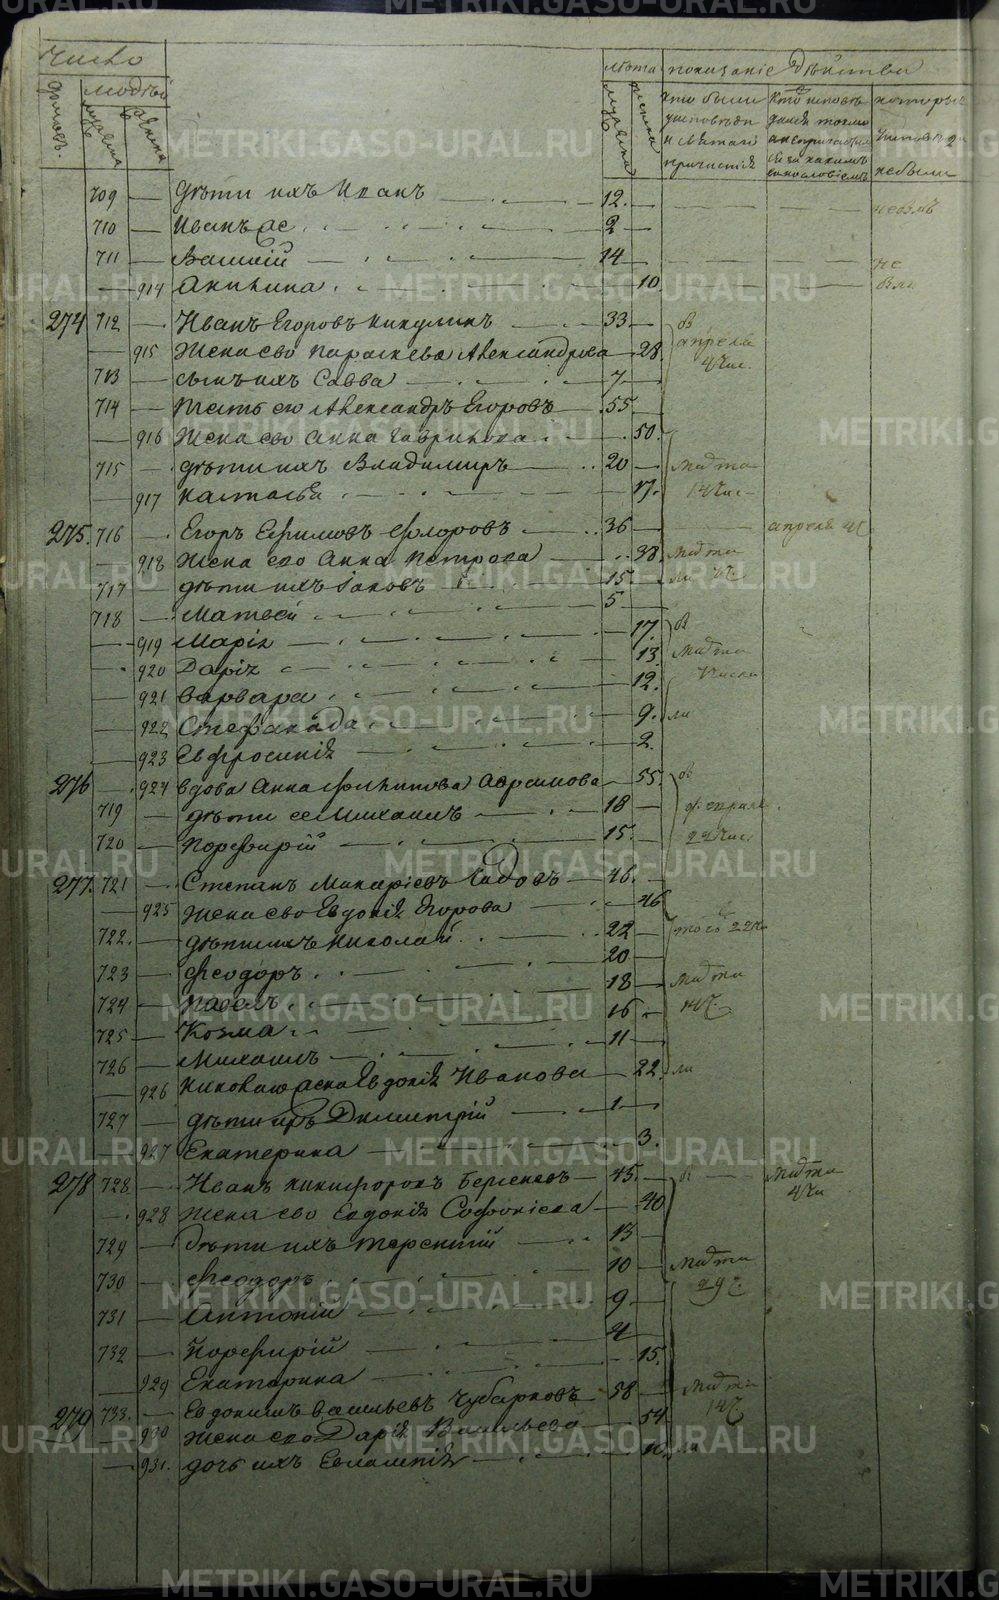 Число
Лѣта показаніе дѣйства
домовъ. людей
мужеска женска
мужеска женска
кто были у исповѣди и святаго причастія
Кто исповѣдался токмо а не причастился и за какимъ винословіемъ
которые у исповѣди не были
709 — дѣти ихъ Иванъ 12.
710 — Иванъ же 2
711 — Василій 14 не
— 914 Акилина 10
274 712 — Иванъ Егоровъ Никулинъ 33 В
— 915 Жена его Параскева Александрова 28. апреля 4 чис.
713 — сынъ ихъ Савва 7
714 — Тесть его Александръ Егоровъ 55
— 916 Жена его Анна Гаврилова 50.
715 — дѣти ихъ Владимиръ 20 марта
— 917 Настасья 17. 14 чис
275. 716 — Егоръ Ефимовъ Флоровъ 36 апреля 4
— 918 Жена его Анна Петрова 38. марта
717 — дѣти ихъ Іаковъ 15
718 — Матвей 5
— 919 Марія 17. В
— 920 Дарія 13. марта
— 921 Варвара 12. числа
— 922 Стефанида 9. ли
— 923 Евфросинія 2.
276 — 924 вдова Анна Филипова Аврамова 55. в
719 — дѣти ее Михаилъ 18 февраля
720 — Порфирій 15. 22 чис.
277. 721 — Степанъ Макаріевъ 46.
— 925 Жена его Евдокія Егорова 46
722. — дѣти ихъ Николай 22 того 22 ч
723 — Феодоръ 20
724 — Павелъ 18 марта
725 — Козма 16 14 ч.
726 — Михаилъ 11
— 926 Николая жена Евдокія Иванова 22. ли
727 — дѣти ихъ Димитрій 1
— 927 Екатерина 3.
278 728 — Иванъ Никифоровъ Берсеневъ 45. В марта
— 928 Жена его Евдокія Софоніева 40 4 чи
729 — дѣти ихъ Терентій 13
730 — Феодоръ 10 марта
731 — Антоній 9 29 ч.
732 — Порфирій 4
— 929 Екатерина 15.
279 733. — Евдокимъ Васильевъ Чубарковъ 58 марта
— 930 Жена его Дарія Васильева 54 14 ч
— 931. дочь ихъ Евлампія 10. ли
METRIKI.GASO-URAL.RU